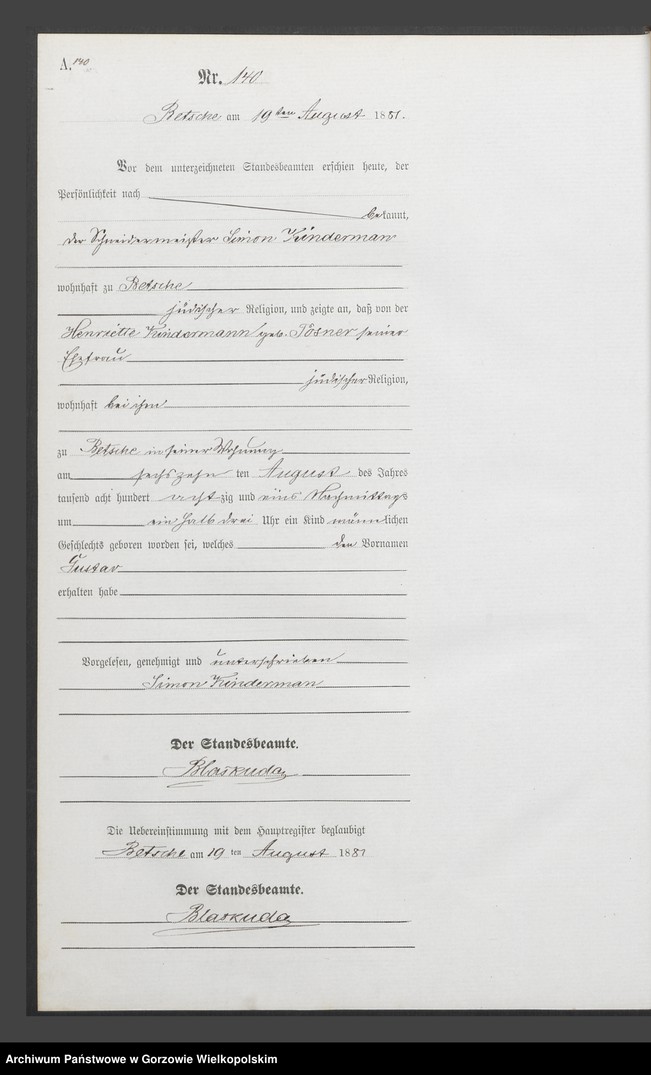 A. 140
Nr. 140
Betsche am 19ten August 1881.
Vor dem unterzeichneten Standesbeamten erschien heute, der
Persönlichkeit nach
bekannt,
der Schneidermeister Simon Kinderman
wohnhaft zu Betsche
jüdischer Religion, und zeigte an, daß von der
Henriette Kindermann geb. Posner seiner
Ehefrau
jüdischer Religion,
wohnhaft bei ihm
zu Betsche in seiner Wohnung
am sechszehn ten August des Jahres
tausend acht hundert achtzig und eins Nachmittags
um ein halb drei Uhr ein Kind männlichen
Geschlechts geboren worden sei, welches den Vornamen
Gustav
erhalten habe
Vorgelesen, genehmigt und unterschrieben
Simon Kinderman
Der Standesbeamte.
Blaskuda
Die Uebereinstimmung mit dem Hauptregister beglaubigt
Betsche am 19 ten August 1881
Der Standesbeamte.
Blaskuda
Archiwum Państwowe w Gorzowie Wielkopolskim